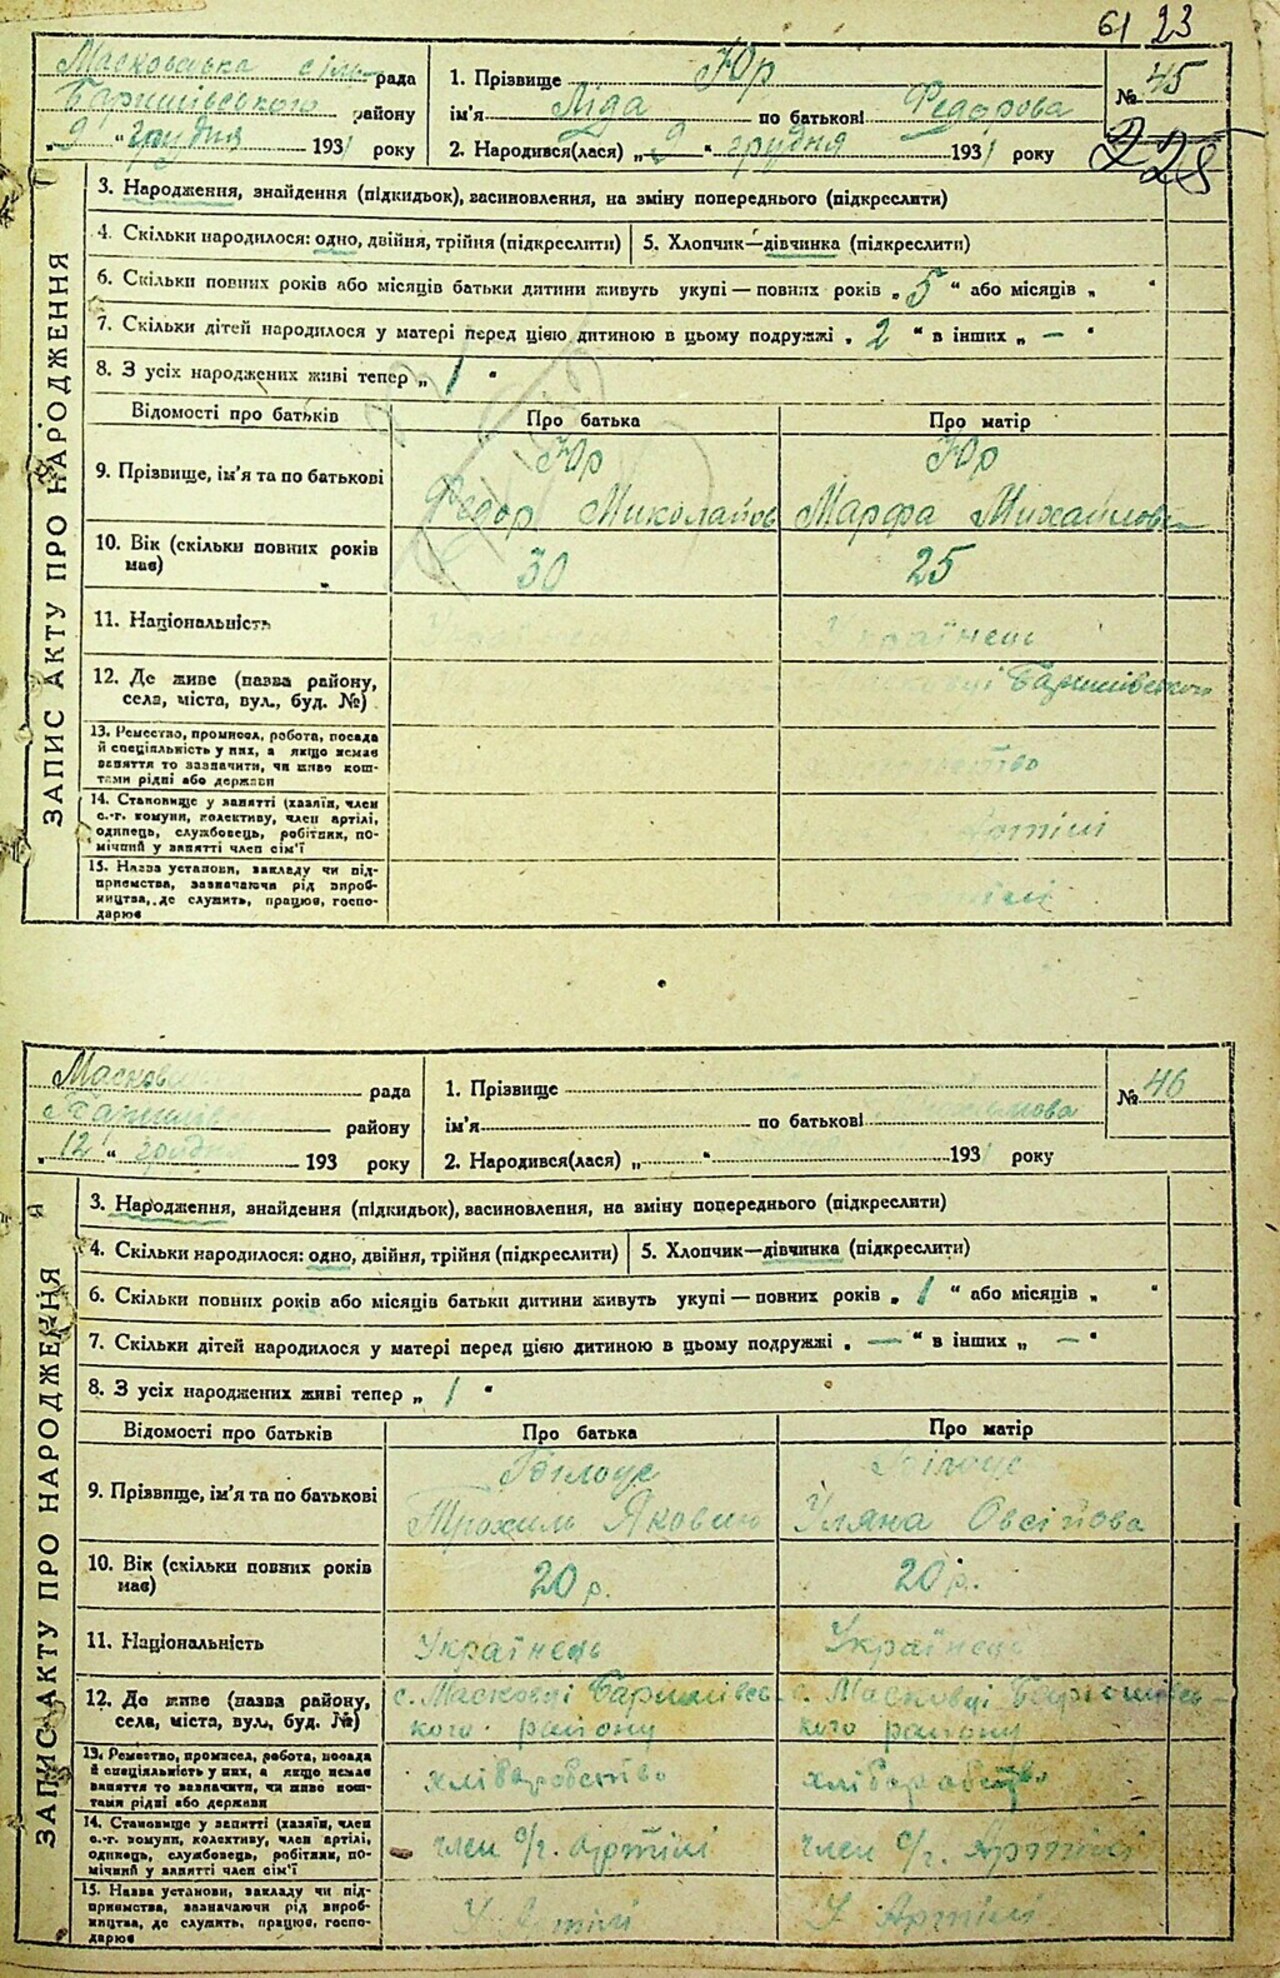 61 23
Масковецька сіль рада
Баришівського району
„9“ грудня 1931 року
1. Прізвище Юр
ім'я Ліда по батькові Федорова
2. Народився(лася) „9“ грудня 1931 року
№ 45
228
ЗАПИС АКТУ ПРО НАРОДЖЕННЯ
3. Народження, знайдення (підкидьок), засиновлення, на зміну попереднього (підкреслити)
4. Скільки народилося: одно, двійня, трійня (підкреслити) 5. Хлопчик—дівчинка (підкреслити)
6. Скільки повних років або місяців батьки дитини живуть укупі — повних років „5“ або місяців „ “
7. Скільки дітей народилося у матері перед цією дитиною в цьому подружжі „2“ в інших „—“
8. З усіх народжених живі тепер „1“
Відомості про батьків Про батька Про матір
9. Прізвище, ім'я та по батькові
Юр Юр
Федор Миколайов Марфа Михайлова
10. Вік (скільки повних років має) 30 25
11. Національність Українець Українець
12. Де живе (назва району, села, міста, вул., буд. №) Баришівського
13. Ремество, промисел, робота, посада
й спеціяльність у них, а якщо немає
заняття то зазначити, чи живе кош-
тами рідні або держави
14. Становище у занятті (хазяїн, член
с.-г. комуни, колективу, член артілі,
одинець, службовець, робітник, по-
мічний у занятті член сім'ї
Артілі
15. Назва установи, закладу чи під-
приємства, зазначаючи рід вироб-
ництва, де служить, працює, госпо-
дарює
Артілі
Масковец рада
Баришівс району
„12“ грудня 193 року
1. Прізвище
ім'я по батькові
2. Народився(лася) „ “ 1931 року
№ 46
ЗАПИС АКТУ ПРО НАРОДЖЕННЯ
3. Народження, знайдення (підкидьок), засиновлення, на зміну попереднього (підкреслити)
4. Скільки народилося: одно, двійня, трійня (підкреслити) 5. Хлопчик—дівчинка (підкреслити)
6. Скільки повних років або місяців батьки дитини живуть укупі — повних років „1“ або місяців „ “
7. Скільки дітей народилося у матері перед цією дитиною в цьому подружжі „—“ в інших „—“
8. З усіх народжених живі тепер „1“
Відомості про батьків Про батька Про матір
9. Прізвище, ім'я та по батькові
Білоус Білоус
Трохим Яковлю Уляна Овсійова
10. Вік (скільки повних років має) 20 р. 20 р.
11. Національність Українець Українець
12. Де живе (назва району, села, міста, вул., буд. №)
с. Масковці Баришівсь- с. Масковці Баришівсь-
кого району кого району
13. Ремество, промисел, робота, посада
й спеціяльність у них, а якщо немає
заняття то зазначити, чи живе кош-
тами рідні або держави
хліборобство хліборобство
14. Становище у занятті (хазяїн, член
с.-г. комуни, колективу, член артілі,
одинець, службовець, робітник, по-
мічний у занятті член сім'ї
член с/г. артілі член с/г. Артілі
15. Назва установи, закладу чи під-
приємства, зазначаючи рід вироб-
ництва, де служить, працює, госпо-
дарює
У Артілі У Артілі